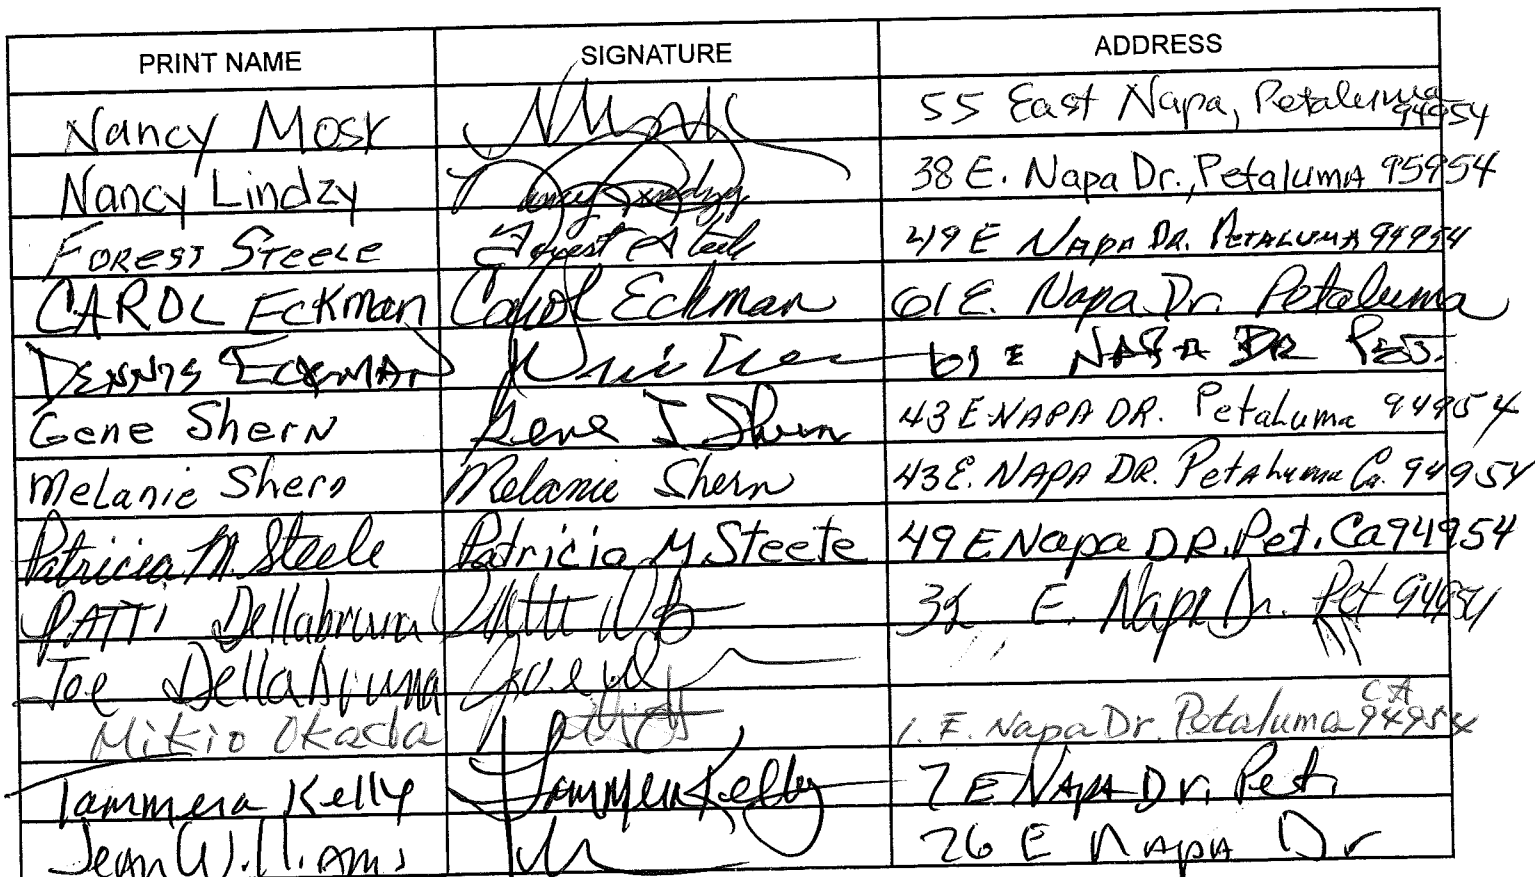 PRINT NAME SIGNATURE ADDRESS
Nancy Mosk 55 East Napa, Petaluma 94954
Nancy Lindzy Nancy Lindzy 38 E. Napa Dr., Petaluma 95954
Forest Steele Forest Steele 49 E Napa Dr. Petaluma 94954
CAROL Eckman Carol Eckman 61 E. Napa Dr. Petaluma
Dennis Eckman 61 E NAPA DR Pet.
Gene Shern Gene I Shern 43 E. NAPA DR. Petaluma 94954
Melanie Shern Melanie Shern 43 E. NAPA DR. Petaluma Ca. 94954
Patricia M. Steele Patricia M Steele 49 E Napa DR. Pet. Ca 94954
PATTI Dellabruna 32 E. Napa Dr. Pet 94954
Joe Dellabruna
Mikio Okada 1. E. Napa Dr. Petaluma CA 94954
Tammera Kelly Tammera Kelly 7 E Napa Dr. Pet.
Jean Williams 26 E Napa Dr